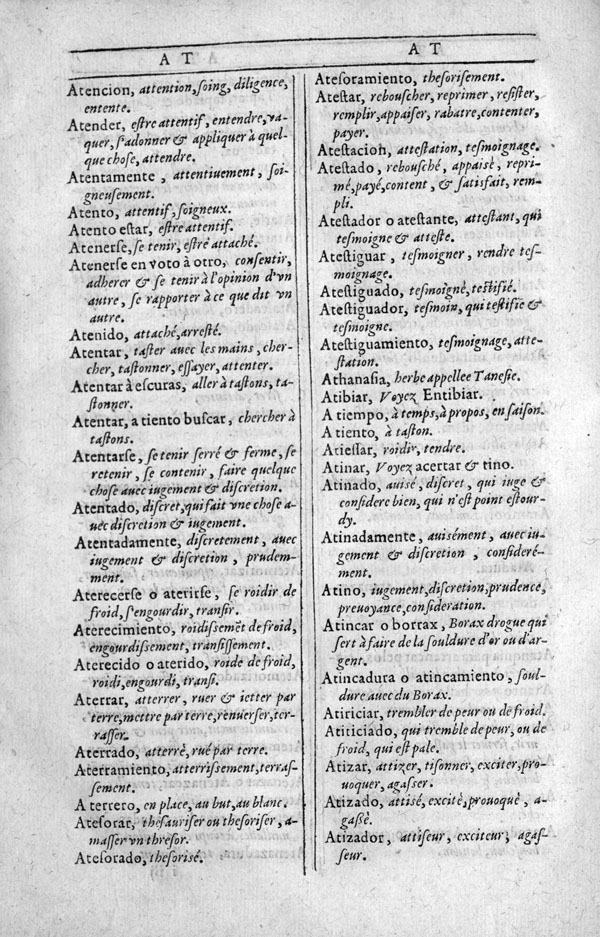 A T
Atencion, attention, soing, diligence,
entente.
Atender, estre attentif, entendre, va-
quer, s'adonner & appliquer à quel-
que chose, attendre.
Atentamente, attentiuement, soi-
gneusement.
Atento, attentif, soigneux.
Atento estar, estre attentif.
Atenerse, se tenir, estre attaché.
Atenerse en voto à otro, consentir,
adherer & se tenir à l'opinion d'vn
autre, se rapporter à ce que dit vn
autre.
Atenido, attaché, arresté.
Atentar, taster auec les mains, cher-
cher, tastonner, essayer, attenter.
Atentar à escuras, aller à tastons, ta-
stonner.
Atentar, a tiento buscar, chercher à
tastons.
Atentarse, se tenir serré & ferme, se
retenir, se contenir, faire quelque
chose auec iugement & discretion.
Atentado, discret, qui fait vne chose a-
uec discretion & iugement.
Atentadamente, discretement, auec
iugement & discretion, prudem-
ment.
Aterecerse o aterirse, se roidir de
froid, s'engourdir, transir.
Aterecimiento, roidissemẽt de froid,
engourdissement, transissement.
Aterecido o aterido, roide de froid,
roidi, engourdi, transi.
Aterrar, atterrer, ruer & ietter par
terre, mettre par terre, renuerser, ter-
rasser.
Aterrado, atterré, rué par terre.
Aterramiento, atterrissement, terras-
sement.
A terrero, en place, au but, au blanc.
Atesorar, thesauriser ou thesoriser, a-
masser vn thresor.
Atesorado, thesorisé.
A T
Atesoramiento, thesorisement.
Atestar, rebouscher, reprimer, resister,
remplir, appaiser, rabatre, contenter,
payer.
Atestacion, attestation, tesmoignage.
Atestado, rebousché, appaisè, repri-
mé, payé, content, & satisfait, rem-
pli.
Atestador o atestante, attestant, qui
tesmoigne & atteste.
Atestiguar, tesmoigner, rendre tes-
moignage.
Atestiguado, tesmoignè, testifié.
Atestiguador, tesmoin, qui testifie &
tesmoigne.
Atestiguamiento, tesmoignage, atte-
station.
Athanasia, herbe appellee Tanesie.
Atibiar, Voyez Entibiar.
A tiempo, à temps, à propos, en saison.
A tiento, à taston.
Atiessar, roidir, tendre.
Atinar, Voyez acertar & tino.
Atinado, auisé, discret, qui iuge &
considere bien, qui n'est point estour-
dy.
Atinadamente, auisément, auec iu-
gement & discretion, consideré-
ment.
Atino, iugement, discretion, prudence,
preuoyance, consideration.
Atincar o borrax, Borax drogue qui
sert à faire de la souldure d'or ou d'ar-
gent.
Atincadura o atincamiento, soul-
dure auec du Borax.
Atiriciar, trembler de peur ou de froid.
Atiticiado, qui tremble de peur, ou de
froid, qui est pale.
Atizar, attizer, tisonner, exciter, pro-
uoquer, agasser.
Atizado, attisé, excitè, prouoquè, a-
gaßè.
Atizador, attiseur, exciteur, agas-
seur.